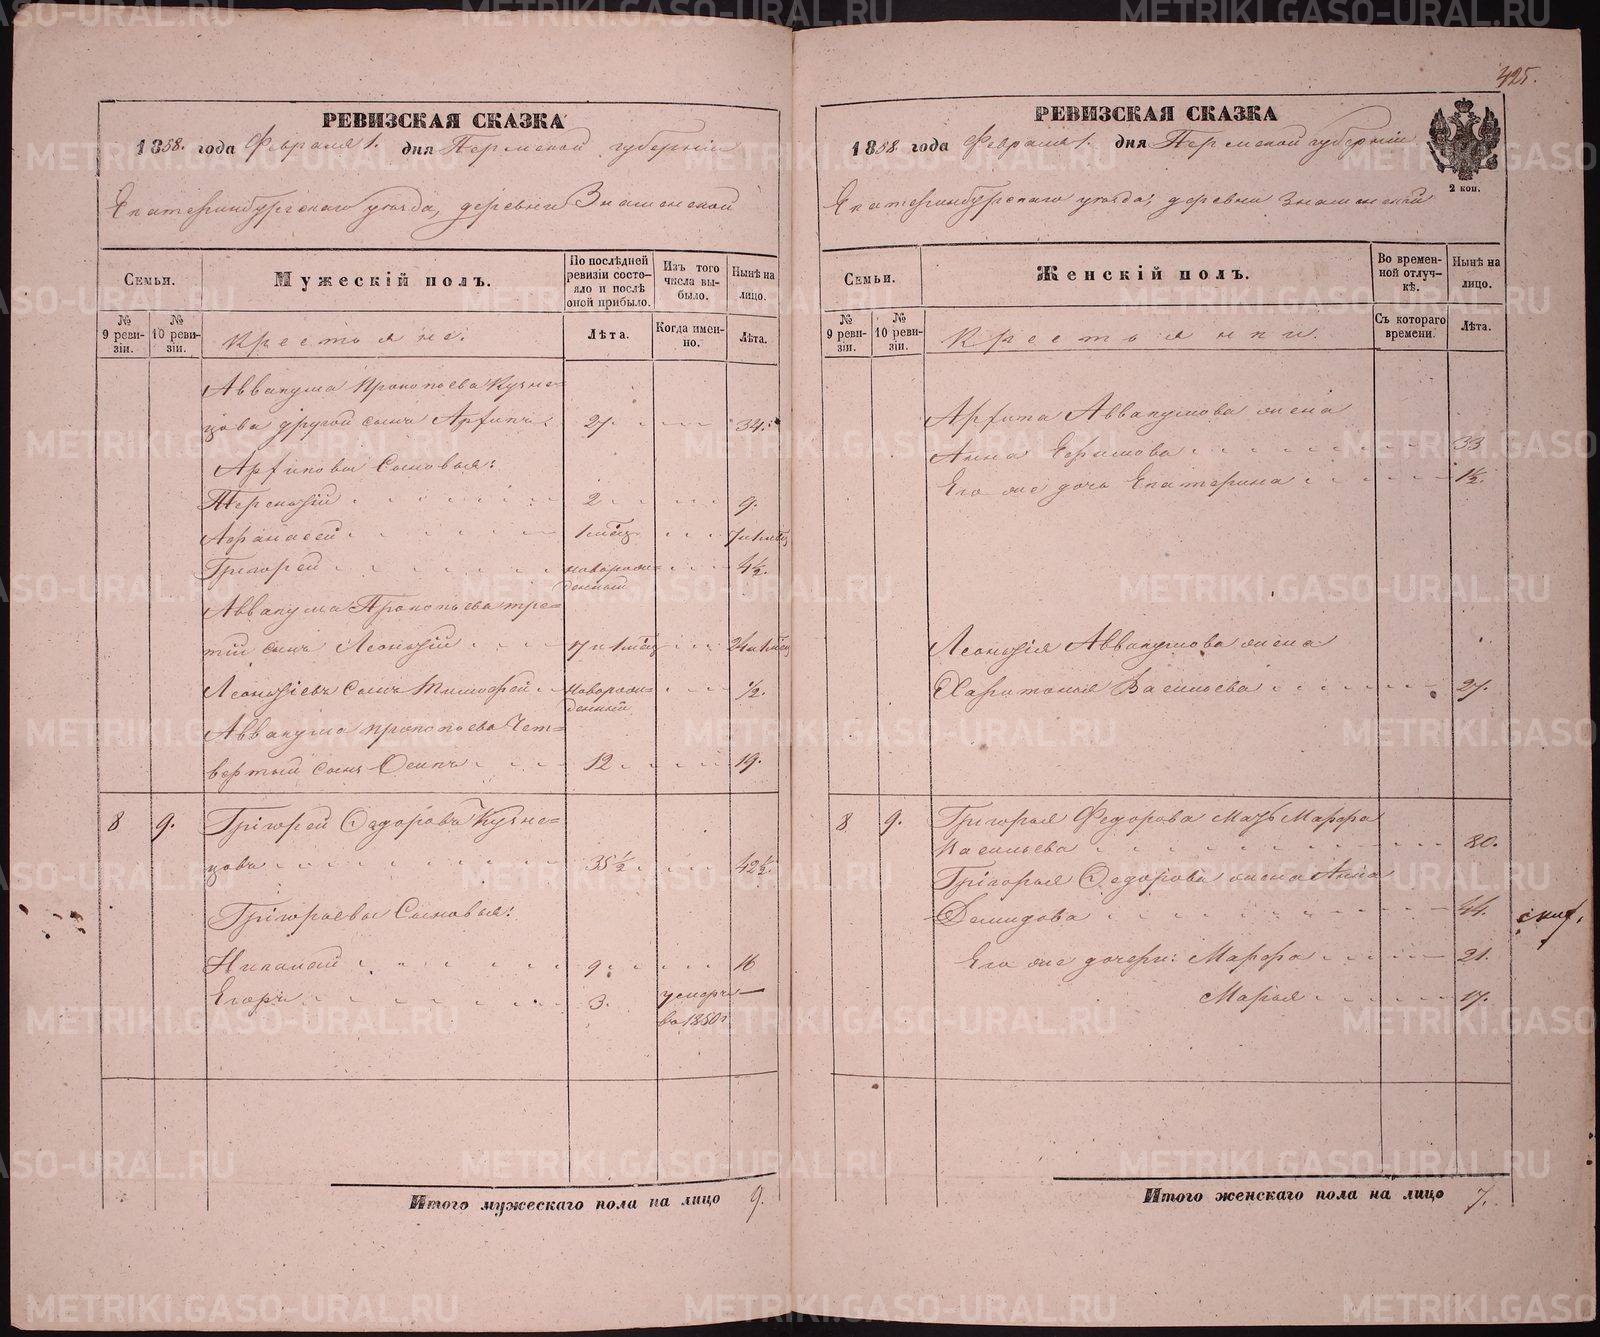 425.
РЕВИЗСКАЯ СКАЗКА
1858. года Февраля 1. дня Пермской губерніи
Екатеринбургскаго уѣзда, деревни Знаменской
Семьи.
Мужескій полъ.
По послѣдней ревизіи состояло и послѣ оной прибыло.
Изъ того числа выбыло.
Нынѣ на лицо.
№ 9 ревизіи.
№ 10 ревизіи.
Крестьяне.
Лѣта.
Когда именно.
Лѣта.
Аввакума Прокопьева Кузне=
цова другой сынъ Архипъ 27. 34.
Архиповы Сыновья:
Терентій 2 9.
Афанасей 1 мѣсяц 7 и 1 мѣсяц
Григорей новорож=денный 4½.
Аввакума Прокопьева тре=
тій сынъ Леонтій 17 и 1 мѣсяц 24 и 1 мѣсяц
Леонтіевъ Сынъ Тимофей новорож=денный ½.
Аввакума Прокопьева Чет=
вертый сынъ Осипъ 12 19.
8 9. Григорей Федоровъ Кузне=
цовъ 35½ 42½.
Григорьевы Сыновья:
9. 16
Егоръ 3. умеръ въ 1850 г —
Итого мужескаго пола на лицо 9.
РЕВИЗСКАЯ СКАЗКА
1858 года Февраля 1. дня Пермской губерніи
2 коп.
Екатеринбургскаго уѣзда, деревни Знаменской
Семьи.
Женскій полъ.
Во временной отлучкѣ.
Нынѣ на лицо.
№ 9 ревизіи.
№ 10 ревизіи.
Крестьянки.
Съ котораго времени.
Лѣта.
Архипа Аввакумова жена
Анна Ефимова 33
Его же дочь Екатерина 1½.
Леонтія Аввакумова жена
Харитонья Васильева 27.
8 9. Григорья Федорова Мать Марфа
Васильева 80.
Григорья Федорова жена Анна
Демидова 44.
Его же дочери: Марфа 21.
Марья 17.
Итого женскаго пола на лицо 7.
METRIKI.GASO-URAL.RU